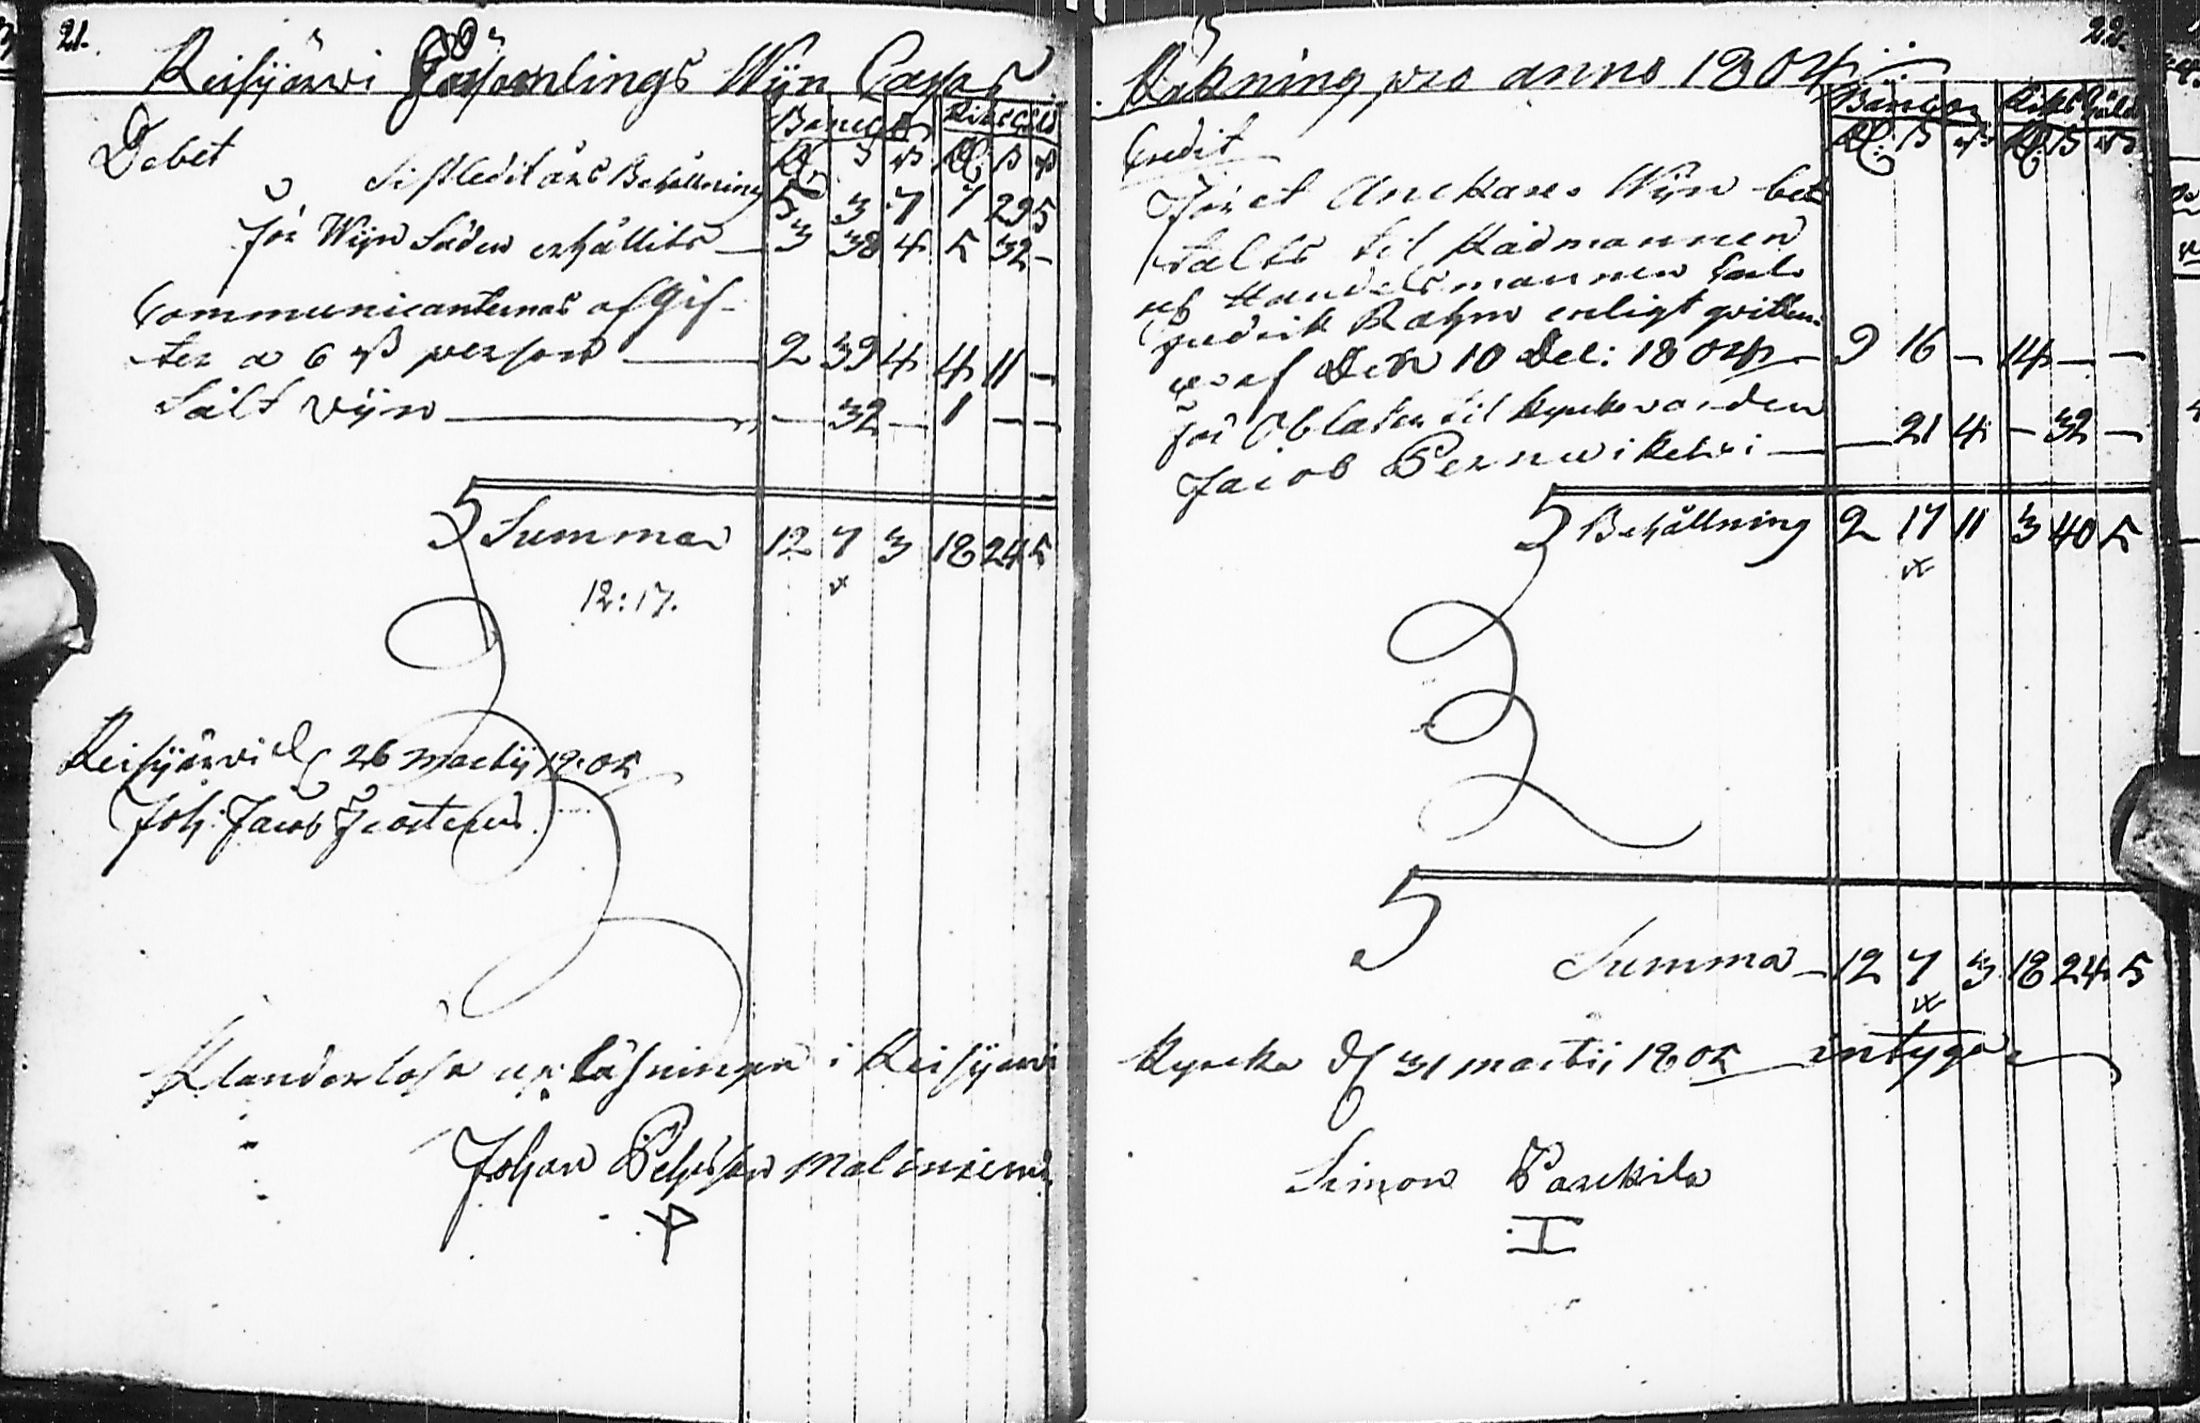 21.
Reisjärvi Församlings Wijn Cassa
Debet
Banco Riksgäld
Rd. ß rst Rd. ß rst
Sistledit års Behållning 5 3 7 7 29 5
för Wijn Säden erhållits — 3 38 4 5 32 —
Communicanternas afgif-
ter a 6 rst person — 2 39 4 4 11 —
Sålt vijn — — 32 — 1 — —
Summa 12 7 3 18 24 5
12:17.
Reisjärvi d 26 Martij 1805
Joh: Jacob
Klanderlösa upläsningen i Reisjärvi
Johan Pehrsson
22.
Räkning pro anno 1804
Credit
Banco Riksgäld
Rd: ß rst Rd: ß rst
För et Anckare Wijn bet
talts til Rådmannen
och Handelsmannen Carl
Fredrik Rahm enligt qvitten-
af Den 10 Dec: 1804 — 9 16 — 14 — —
för Oblater til kyrkovärden
Jacob — — 21 4 — 32 —
Behållning 2 17 11 3 40 5
Summa — 12 7 3 18 24 5
kyrcka d 31 martii 1805 intygar
Simon Parckila